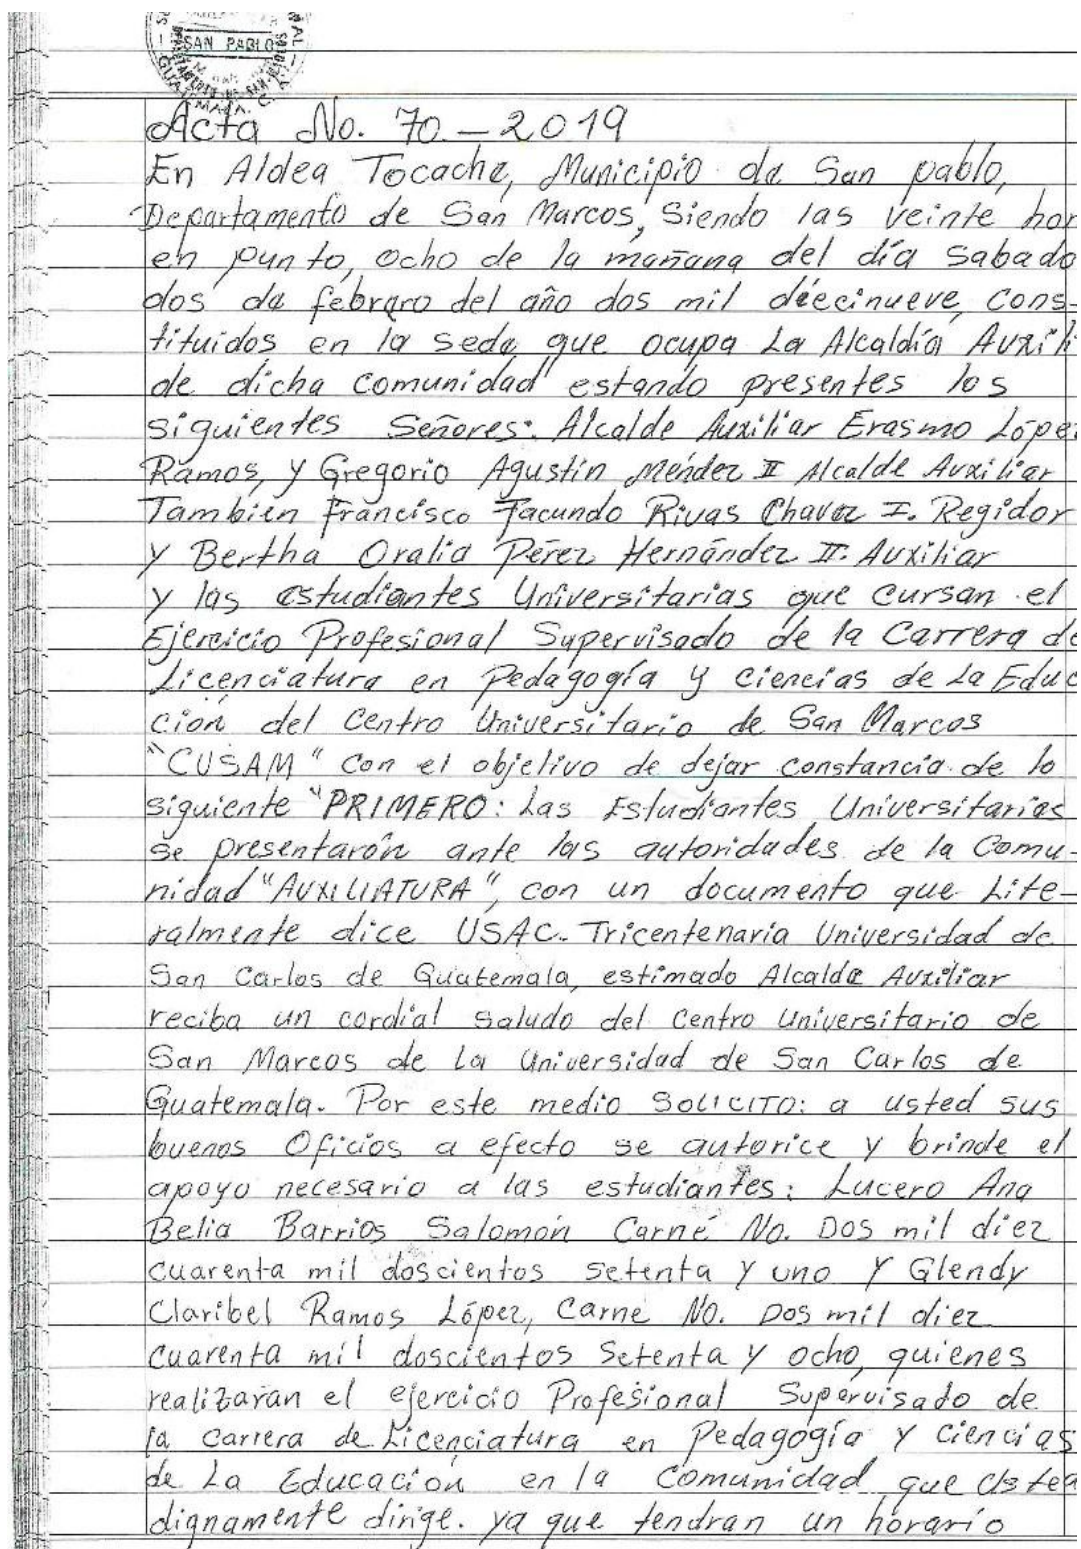 SAN PABLO
GUATEMALA, C. A.
Acta No. 70-2019
En Aldea Tocache, Municipio de San pablo,
Departamento de San Marcos, Siendo las veinte hor
en punto, ocho de la mañana del día Sabado
dos de febrero del año dos mil diecinueve, cons-
tituidos en la sede que ocupa La Alcaldía Auxili
de dicha comunidad estando presentes los
siguientes Señores: Alcalde Auxiliar Erasmo López
Ramos, y Gregorio Agustin Méndez II Alcalde Auxiliar
También Francisco Facundo Rivas Chavez I. Regidor
y Bertha Oralia Pérez Hernández II. Auxiliar
y las estudiantes Universitarias que cursan el
Ejercicio Profesional Supervisado de la Carrera de
Licenciatura en Pedagogía y Ciencias de La Educ
ción del Centro Universitario de San Marcos
"CUSAM" con el objetivo de dejar constancia de lo
siguiente "PRIMERO: Las Estudiantes Universitarias
se presentarón ante las autoridades de la Comu-
nidad "AUXILIATURA", con un documento que Lite-
ralmente dice USAC. Tricentenaria Universidad de
San Carlos de Guatemala, estimado Alcalde Auxiliar
reciba un cordial saludo del Centro Universitario de
San Marcos de La Universidad de San Carlos de
Guatemala. Por este medio SOLICITO: a usted sus
buenos Oficios a efecto se autorice y brinde el
apoyo necesario a las estudiantes: Lucero Ana
Belia Barrios Salomón Carné No. Dos mil diez
cuarenta mil doscientos setenta y uno Y Glendy
Claribel Ramos López, Carne No. Dos mil diez
cuarenta mil doscientos Setenta y ocho, quienes
realizaran el ejercicio Profesional Supervisado de
la carrera de Licenciatura en Pedagogía y Ciencias
de La Educación en la Comunidad que Usted
dignamente dirige. ya que tendran un horario